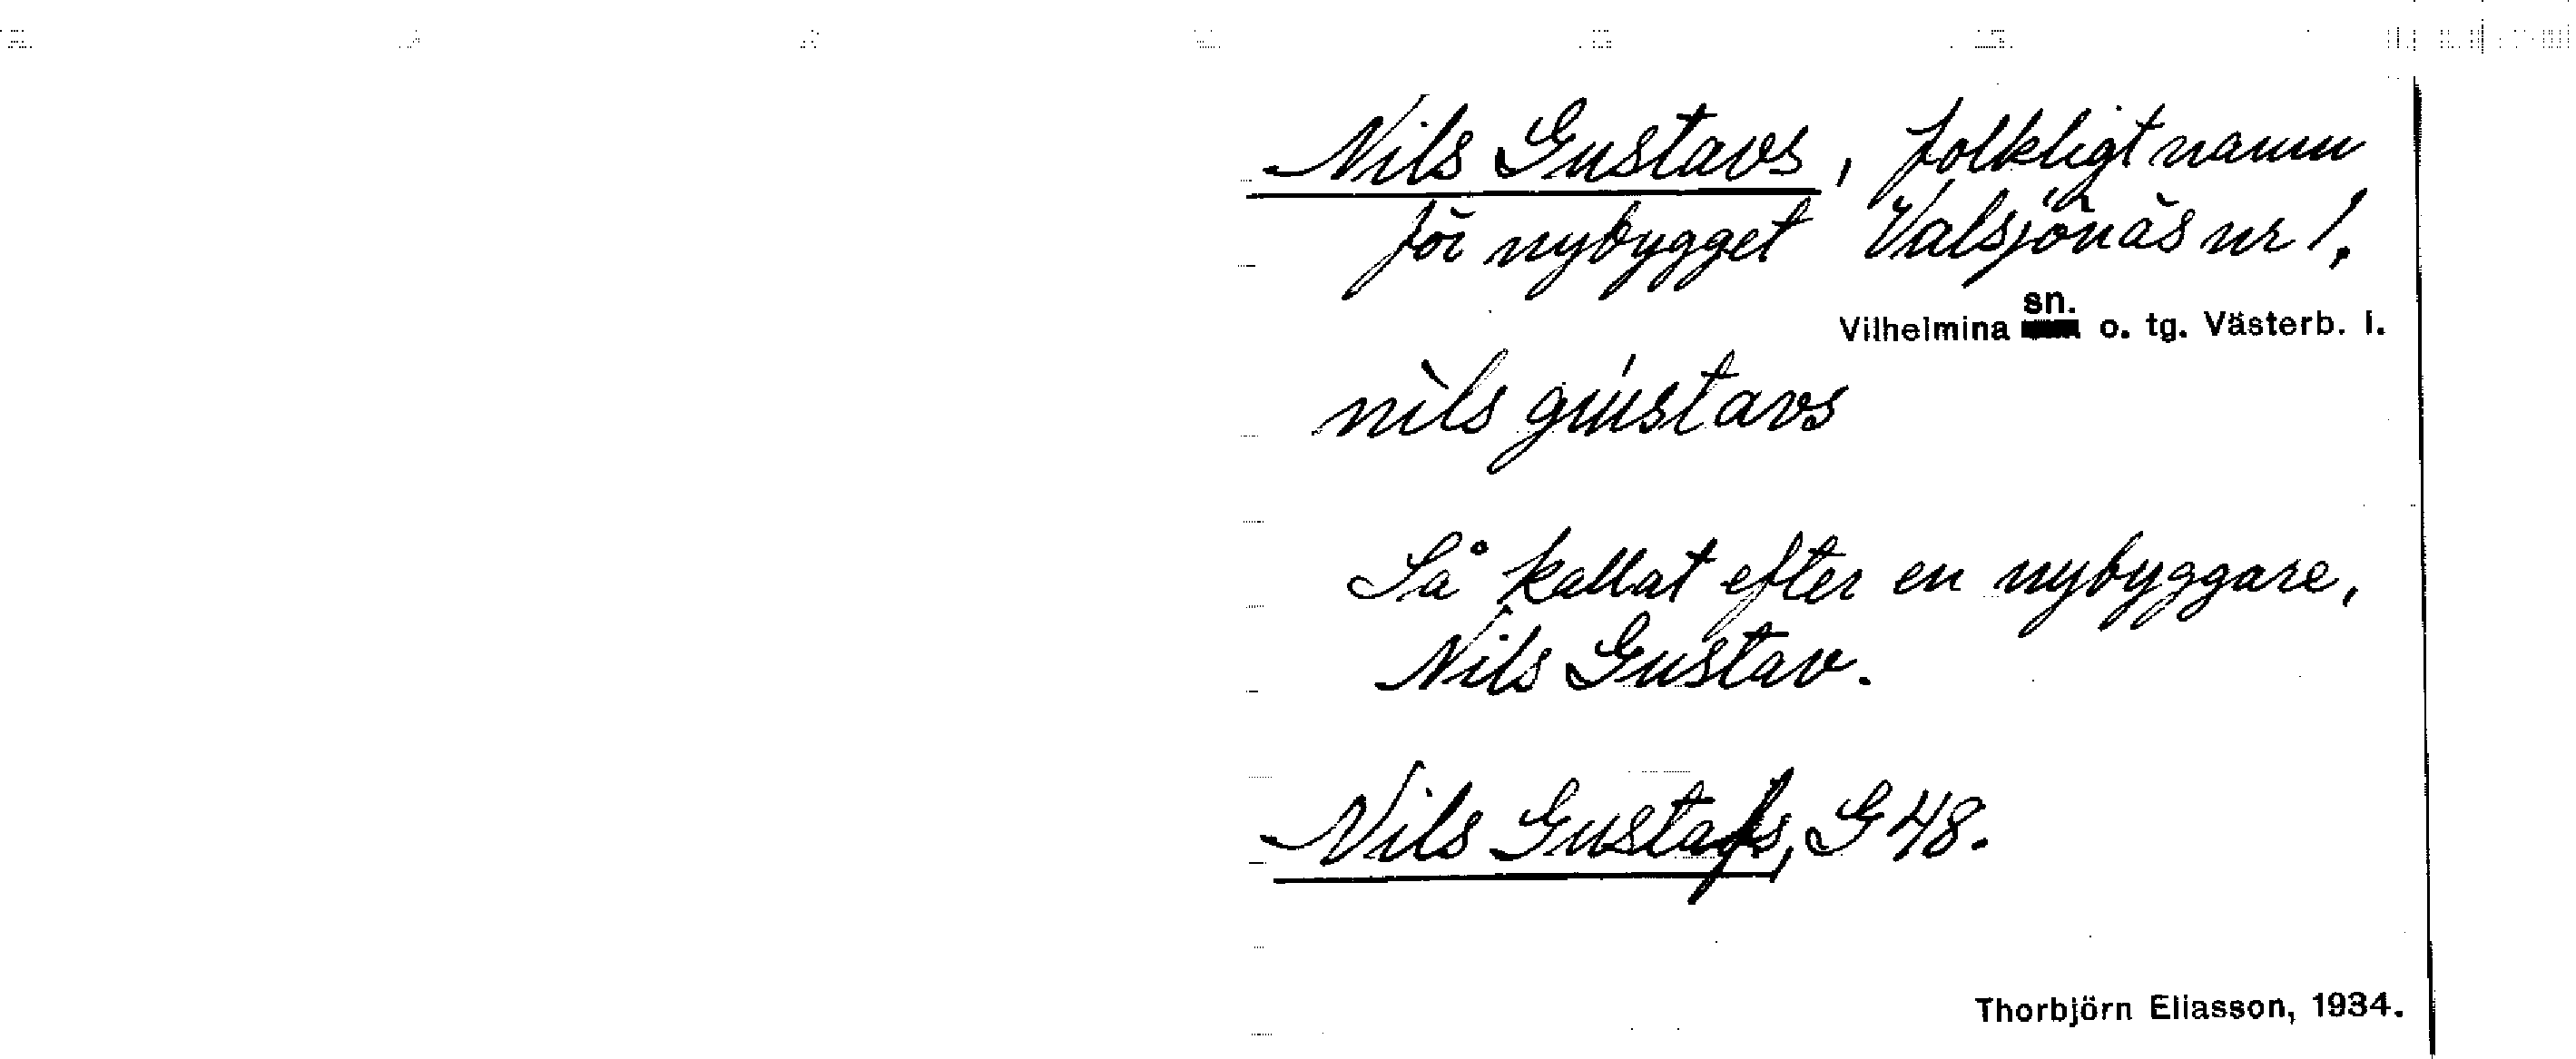 Nils Gustavs, folkligt namn
för nybygget Valsjönäs nr 1.
Vilhelmina sn. o. tg. Västerb. l.
nìls gústavs
Så kallat efter en nybyggare,
Nils Gustav.
Nils Gustafs, G 48.
Thorbjörn Eliasson, 1934.